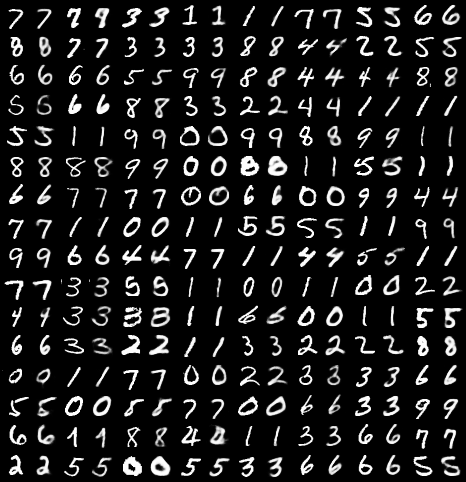 7 7 7 9 3 3 1 1 1 1 7 7 5 5 6 6
8 8 7 7 3 3 3 3 8 8 4 4 2 2 5 5
6 6 6 6 5 5 9 9 8 8 4 4 4 4 8 8
5 5 6 6 8 8 3 3 2 2 4 4 1 1 1 1
5 5 1 1 9 9 0 0 9 9 8 8 9 9 1 1
8 8 8 8 9 9 0 0 8 8 1 1 5 5 1 1
6 6 7 7 7 7 0 0 6 6 0 0 9 9 4 4
7 7 1 1 0 0 1 1 5 5 5 5 1 1 9 9
9 9 6 6 4 4 7 7 1 1 4 4 5 5 1 1
7 7 3 3 5 5 1 1 0 0 1 1 0 0 2 2
4 4 3 3 3 8 1 1 6 6 0 0 1 1 5 5
6 6 3 3 2 2 1 1 3 3 2 2 2 2 8 8
0 0 1 1 7 7 0 0 2 2 3 3 3 3 6 6
5 5 0 0 8 8 7 7 0 0 6 6 3 3 9 9
6 6 1 1 8 8 4 2 1 1 3 3 6 6 7 7
2 2 5 5 0 0 5 5 3 3 6 6 6 6 5 5